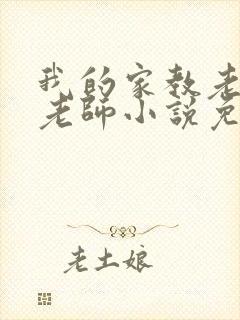 我的家教老
老師小說免
老土娘